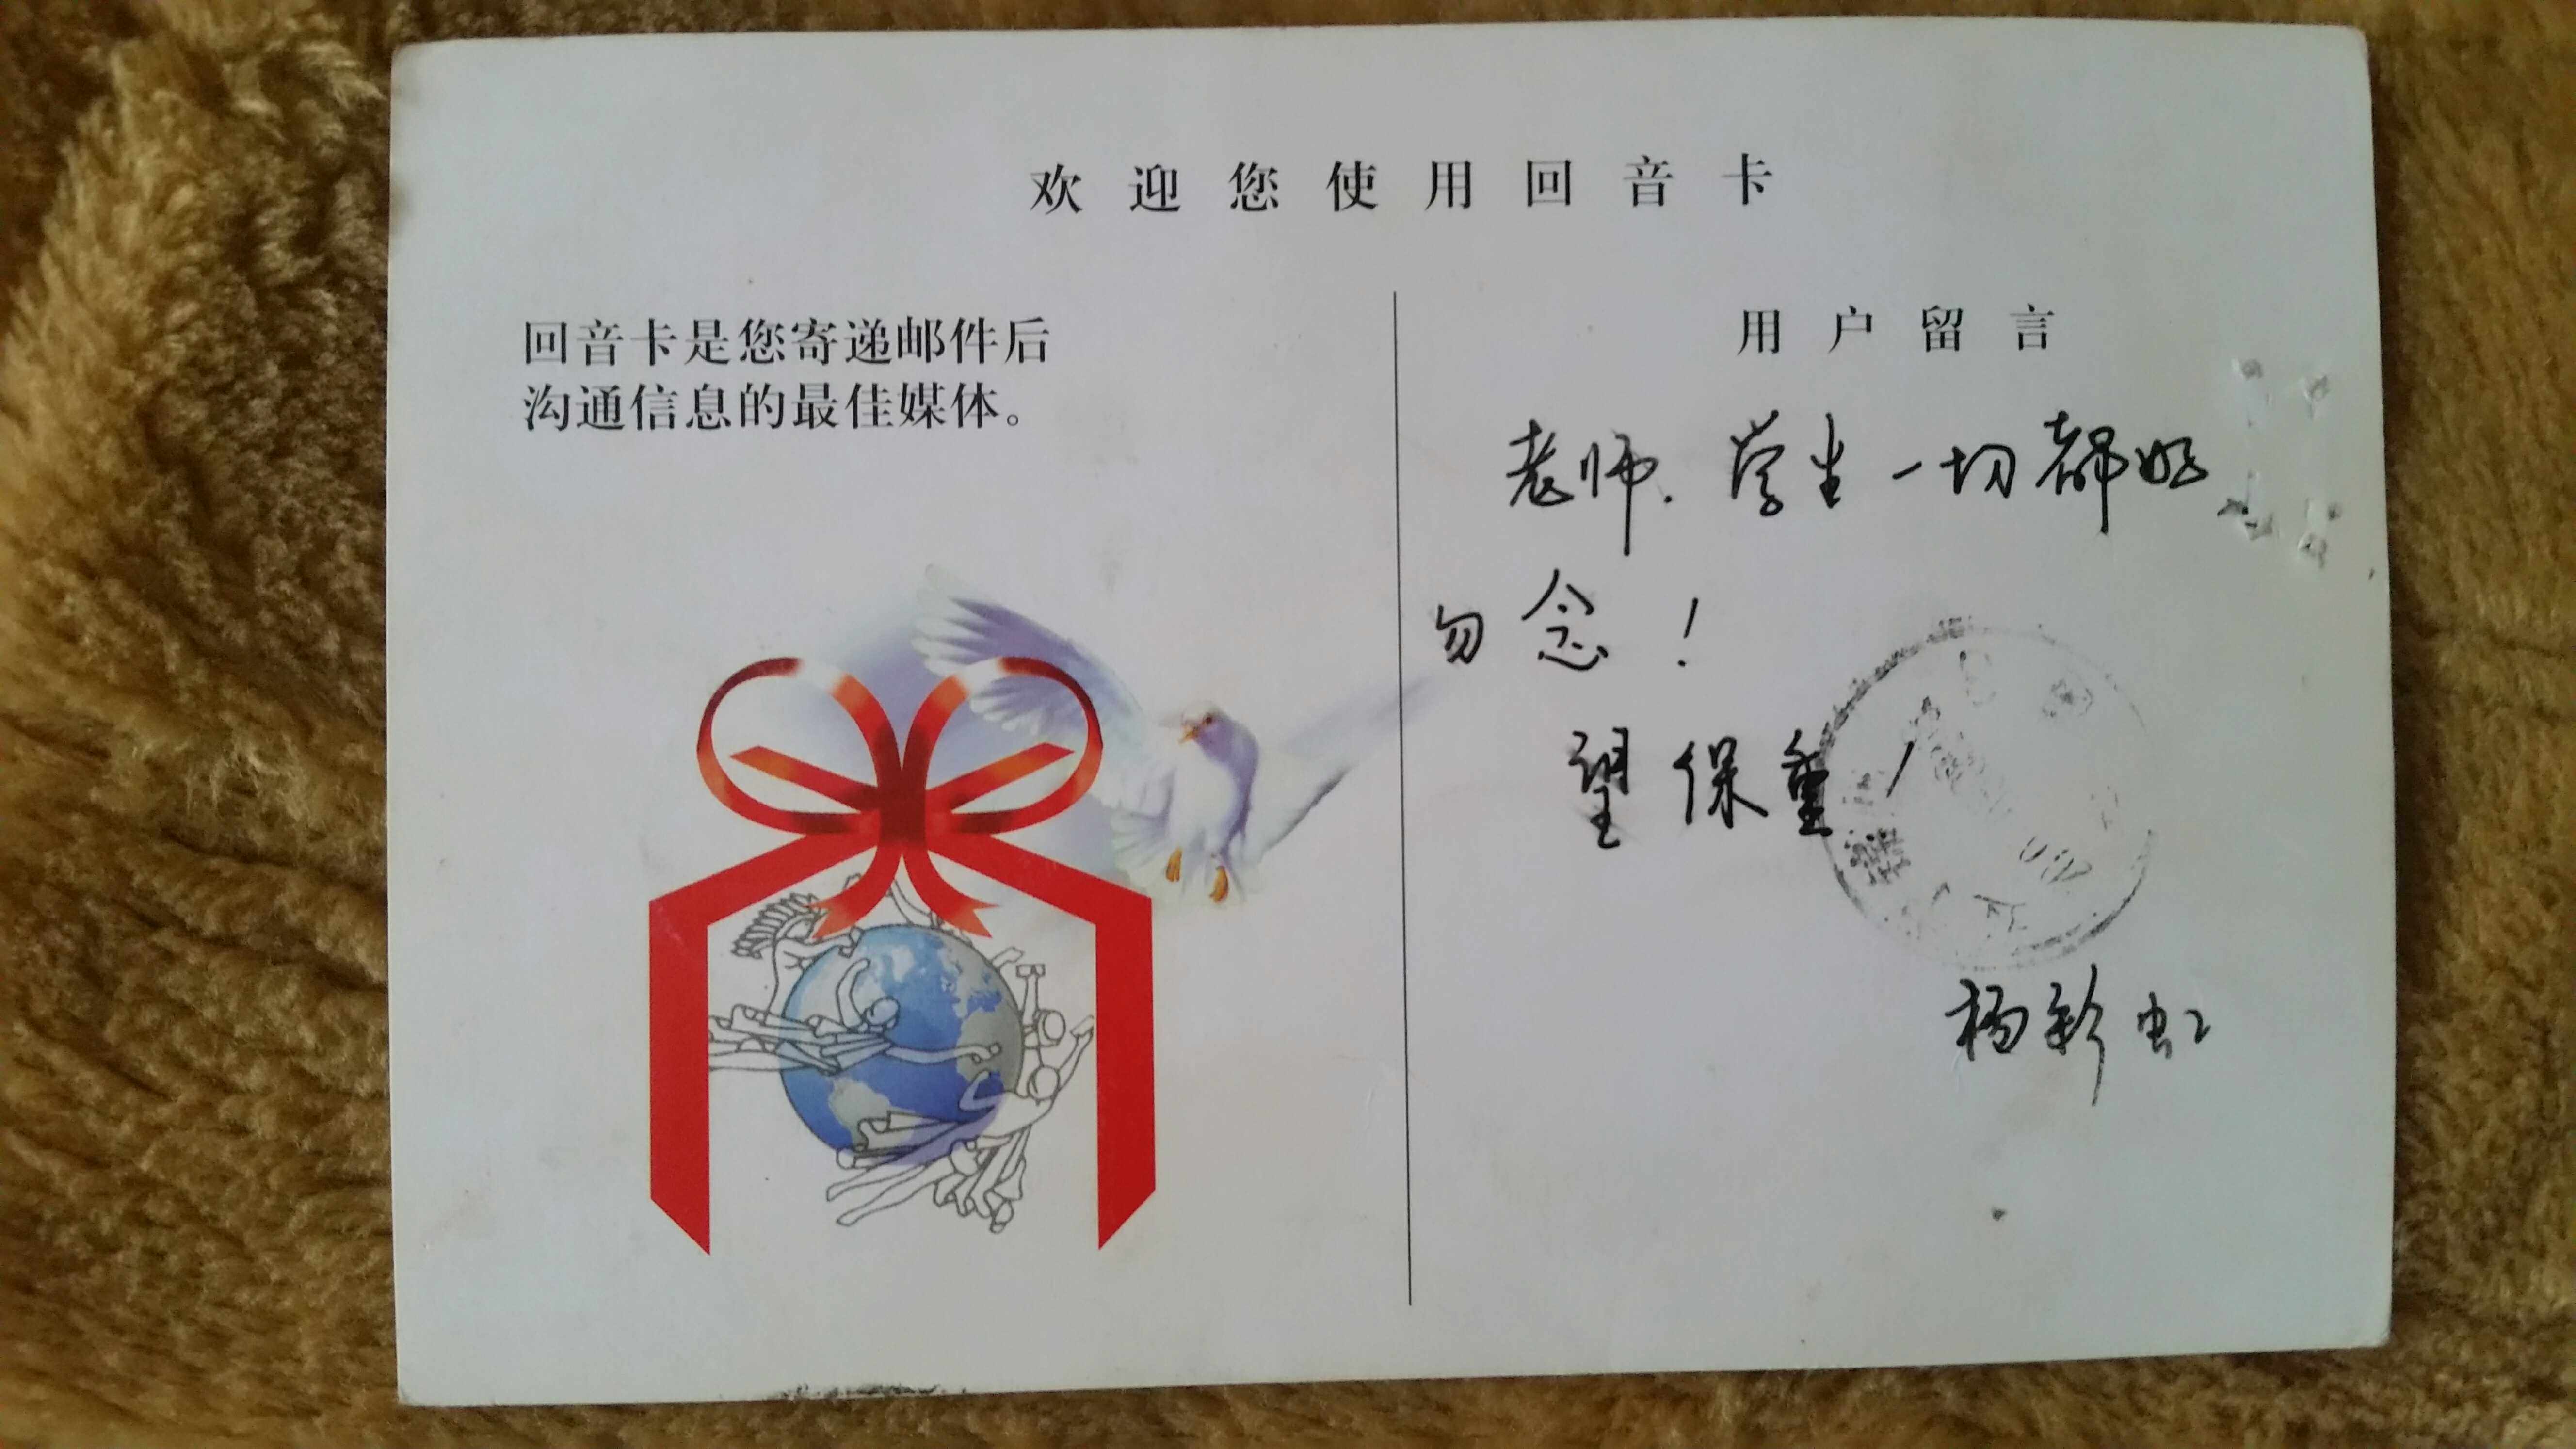 欢迎您使用回音卡
回音卡是您寄递邮件后
沟通信息的最佳媒体。
用户留言
老师.学生一切都好
勿念!
望保重!
杨彩虹